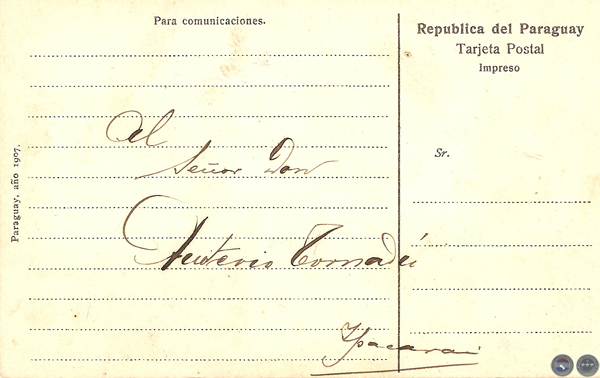 Para comunicaciones.
Republica del Paraguay
Tarjeta Postal
Impreso
Sr.
Paraguay, año 1907.
Al
Señor Don
Ypacarai